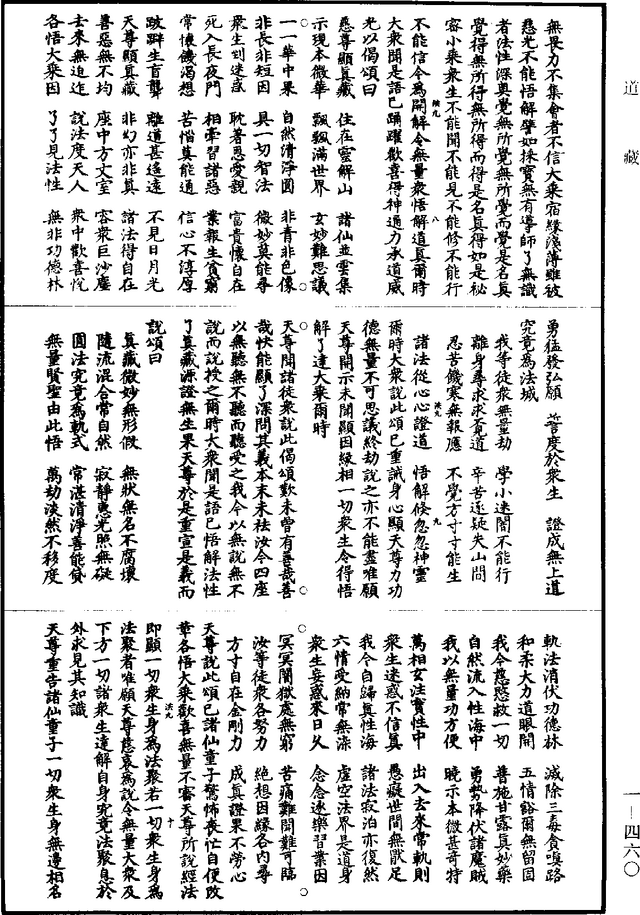 道藏
無畏力不集會者不信大乘宿緣淺薄雖被
慈光不能悟解譬如採寶無有導師了無識
者法性深奧覺無所覺無所覺而覺是名真
覺得無所得無所得而得是名真得如是祕
密小乘衆生不能聞不能見不能修不能行
不能信令爲開解令無量衆悟解道真爾時
大衆聞是語已踊躍歡喜得神通力承道威
光以偈頌曰
慈尊顯真藏 住在靈解山 諸仙並雲集
示現本微華 飄飄滿世界 玄妙難思議
一一華中果 自然清淨圓 非青非色像
非長非短因 具一切智法 微妙莫能尋
衆生到迷惑 耽著恩愛親 富貴懷自在
死入長夜門 相牽習諸惡 業報生貧窮
常懷饑渴想 苦惱莫能通 信心不淳厚
跛躃生盲聾 離道甚遥遠 不見日月光
天尊顯真藏 非幻亦非真 諸法得自在
善惡無不均 座中方丈室 容衆巨沙塵
去來無迫迮 說法度天人 衆中歡喜悅
各悟大乘因 了了見法性 無非功德林
勇猛發弘願 誓度於衆生 證成無上道
究竟爲法城
我等徒衆無量劫 學小迷闇不能行
離身尋求求者道 辛苦逐疑失山問
忍苦饑寒無報應 不覺方寸寸能生
諸法從心心證道 悟解倏忽忽神靈
爾時大衆說此頌已重誡身心顯天尊力功
德無量不可思議終劫說之亦不能盡唯願
天尊開示未聞顯因緣相一切衆生令得悟
解了達大乘爾時
天尊聞諸徒衆說此偈頌歎未曾有善哉善
哉快能顯了深問其義本末未祛汝今四座
以無聽無不聽而聽受之我今以無說無不
說而說授之爾時大衆聞是語已悟解法性
了真藏源證無生果天尊於是重宣是義而
說頌曰
真藏微妙無形假 無狀無名不腐壞
隨流混合常自然 寂靜惠光照無礙
圓法究竟爲軌式 常湛清淨善能貸
無量賢聖由此悟 萬劫淡然不移度
軌法消伏功德林 滅除三毒貪嗔路
和柔大力道眼開 五情豁爾無留固
我今慈愍救一切 善施甘露真妙藥
自然流入性海中 勇勢降伏諸魔賊
我以無量功方便 曉示本微甚奇特
萬相女注實性中 出入去來常軌則
衆生迷惑不信真 愚癡世間無猒足
我今自歸真性海 諸法寂泊亦復然
六情受納常無染 虛空法界是道身
衆生妄惑來日久 念念逐樂習業因
冥冥闇獄處無窮 苦痛難聞難可臨
汝等徒衆各努力 絕想因緣各內尋
方寸自在金剛力 成真證果不勞心
天尊說此頌已諸仙童子驚怖丧忙自便改
章各悟大乘歡喜無量不審天尊所說經法
即顯一切衆生身爲法聚若一切衆生身爲
法聚者唯願天尊慈哀爲說令無量大衆及
下方一切諸衆生達解自身究竟法聚息於
外求見其知識
天尊重告諸仙童子一切衆生身無邊相名
一—四六〇